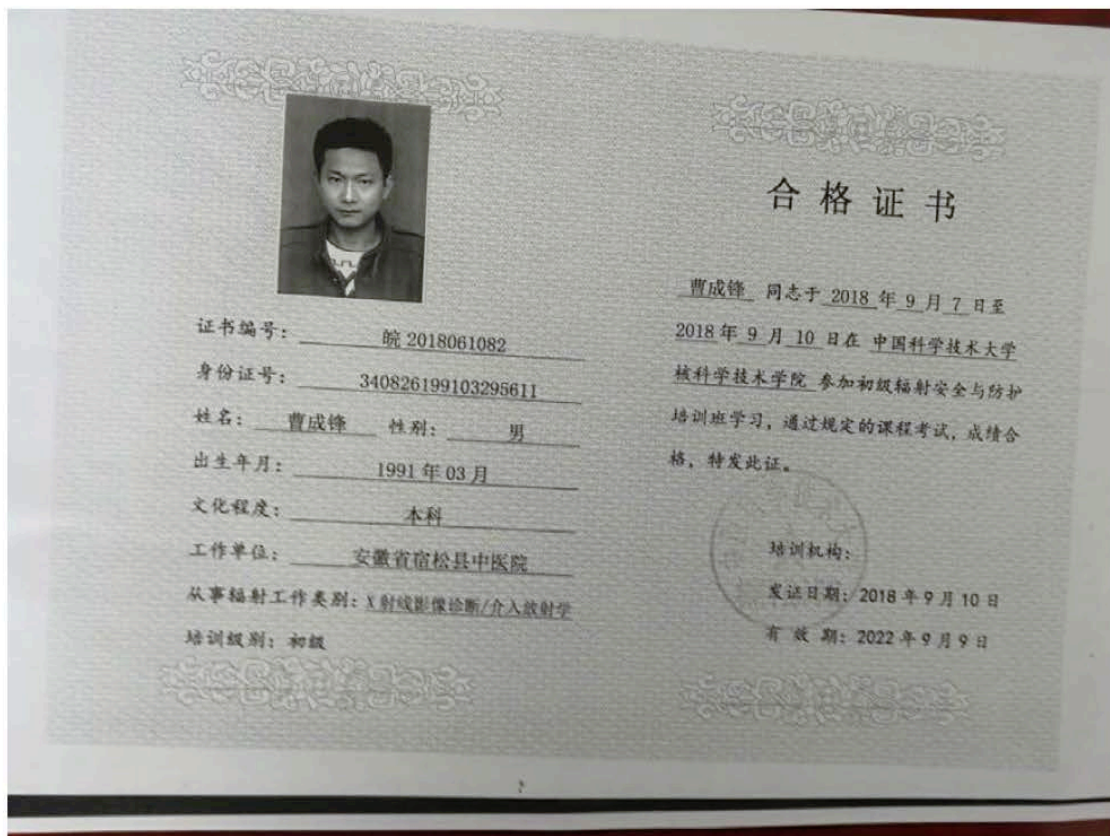 证书编号： 皖 2018061082
身份证号： 340826199103295611
姓名： 曹成锋 性别： 男
出生年月： 1991 年 03 月
文化程度： 本科
工作单位： 安徽省宿松县中医院
从事辐射工作类别：X 射线影像诊断/介入放射学
培训级别：初级
合格证书
曹成锋 同志于 2018 年 9 月 7 日至
2018 年 9 月 10 日在 中国科学技术大学
核科学技术学院 参加初级辐射安全与防护
培训班学习，通过规定的课程考试，成绩合
格，特发此证。
培训机构：
发证日期：2018 年 9 月 10 日
有 效 期：2022 年 9 月 9 日